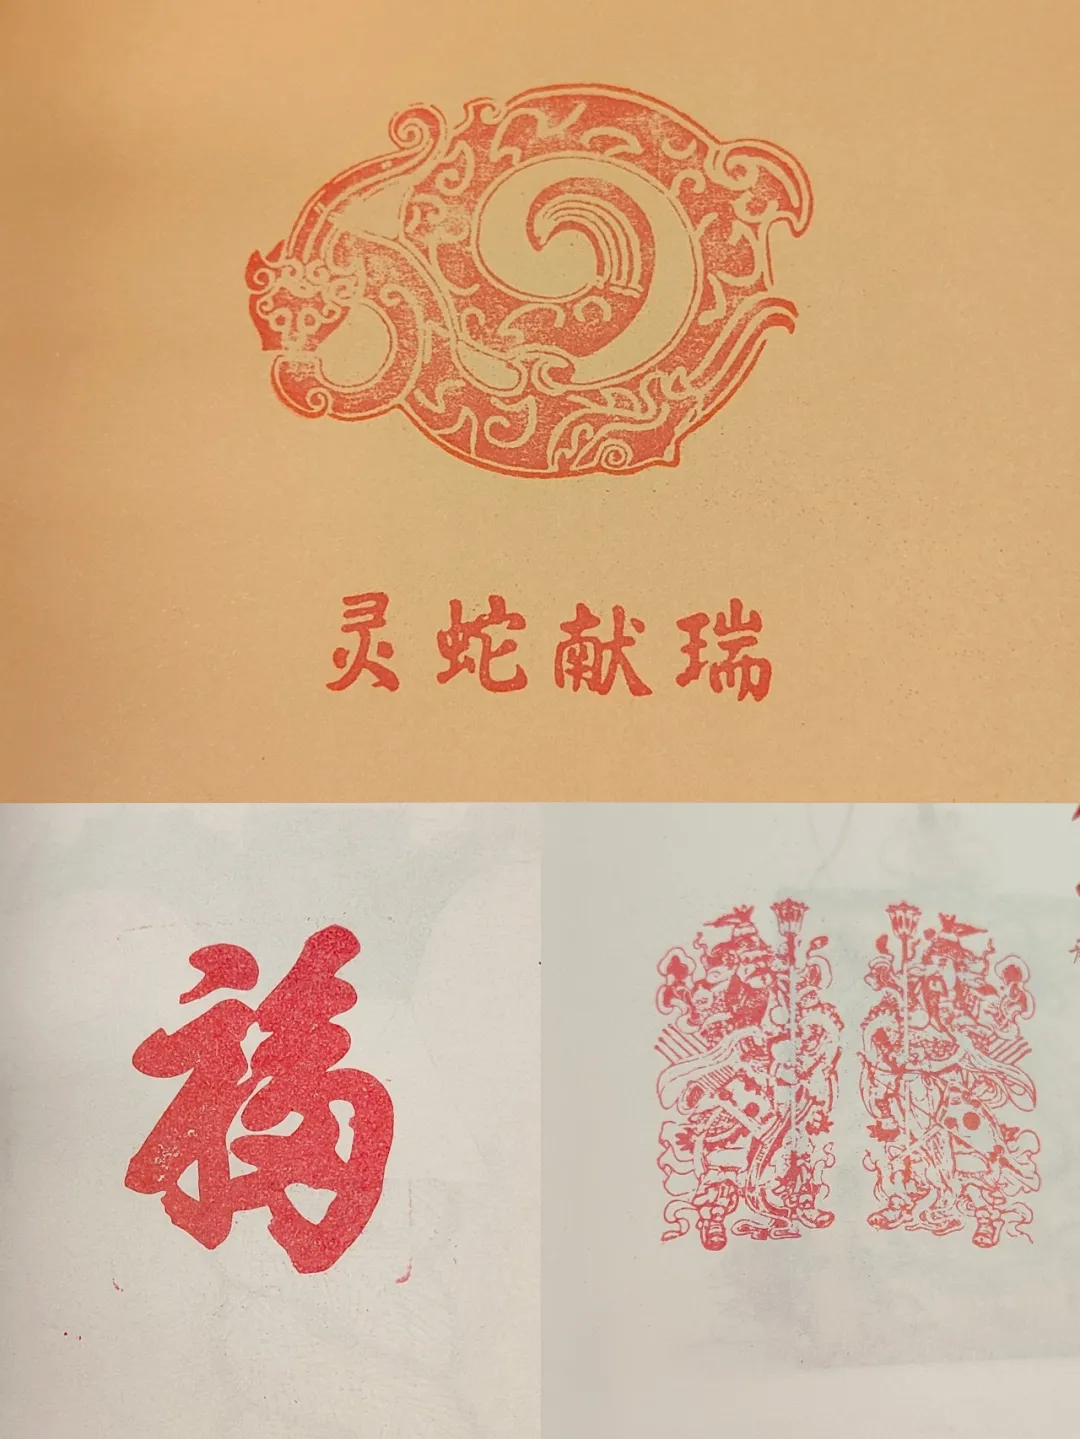 灵蛇献瑞
福